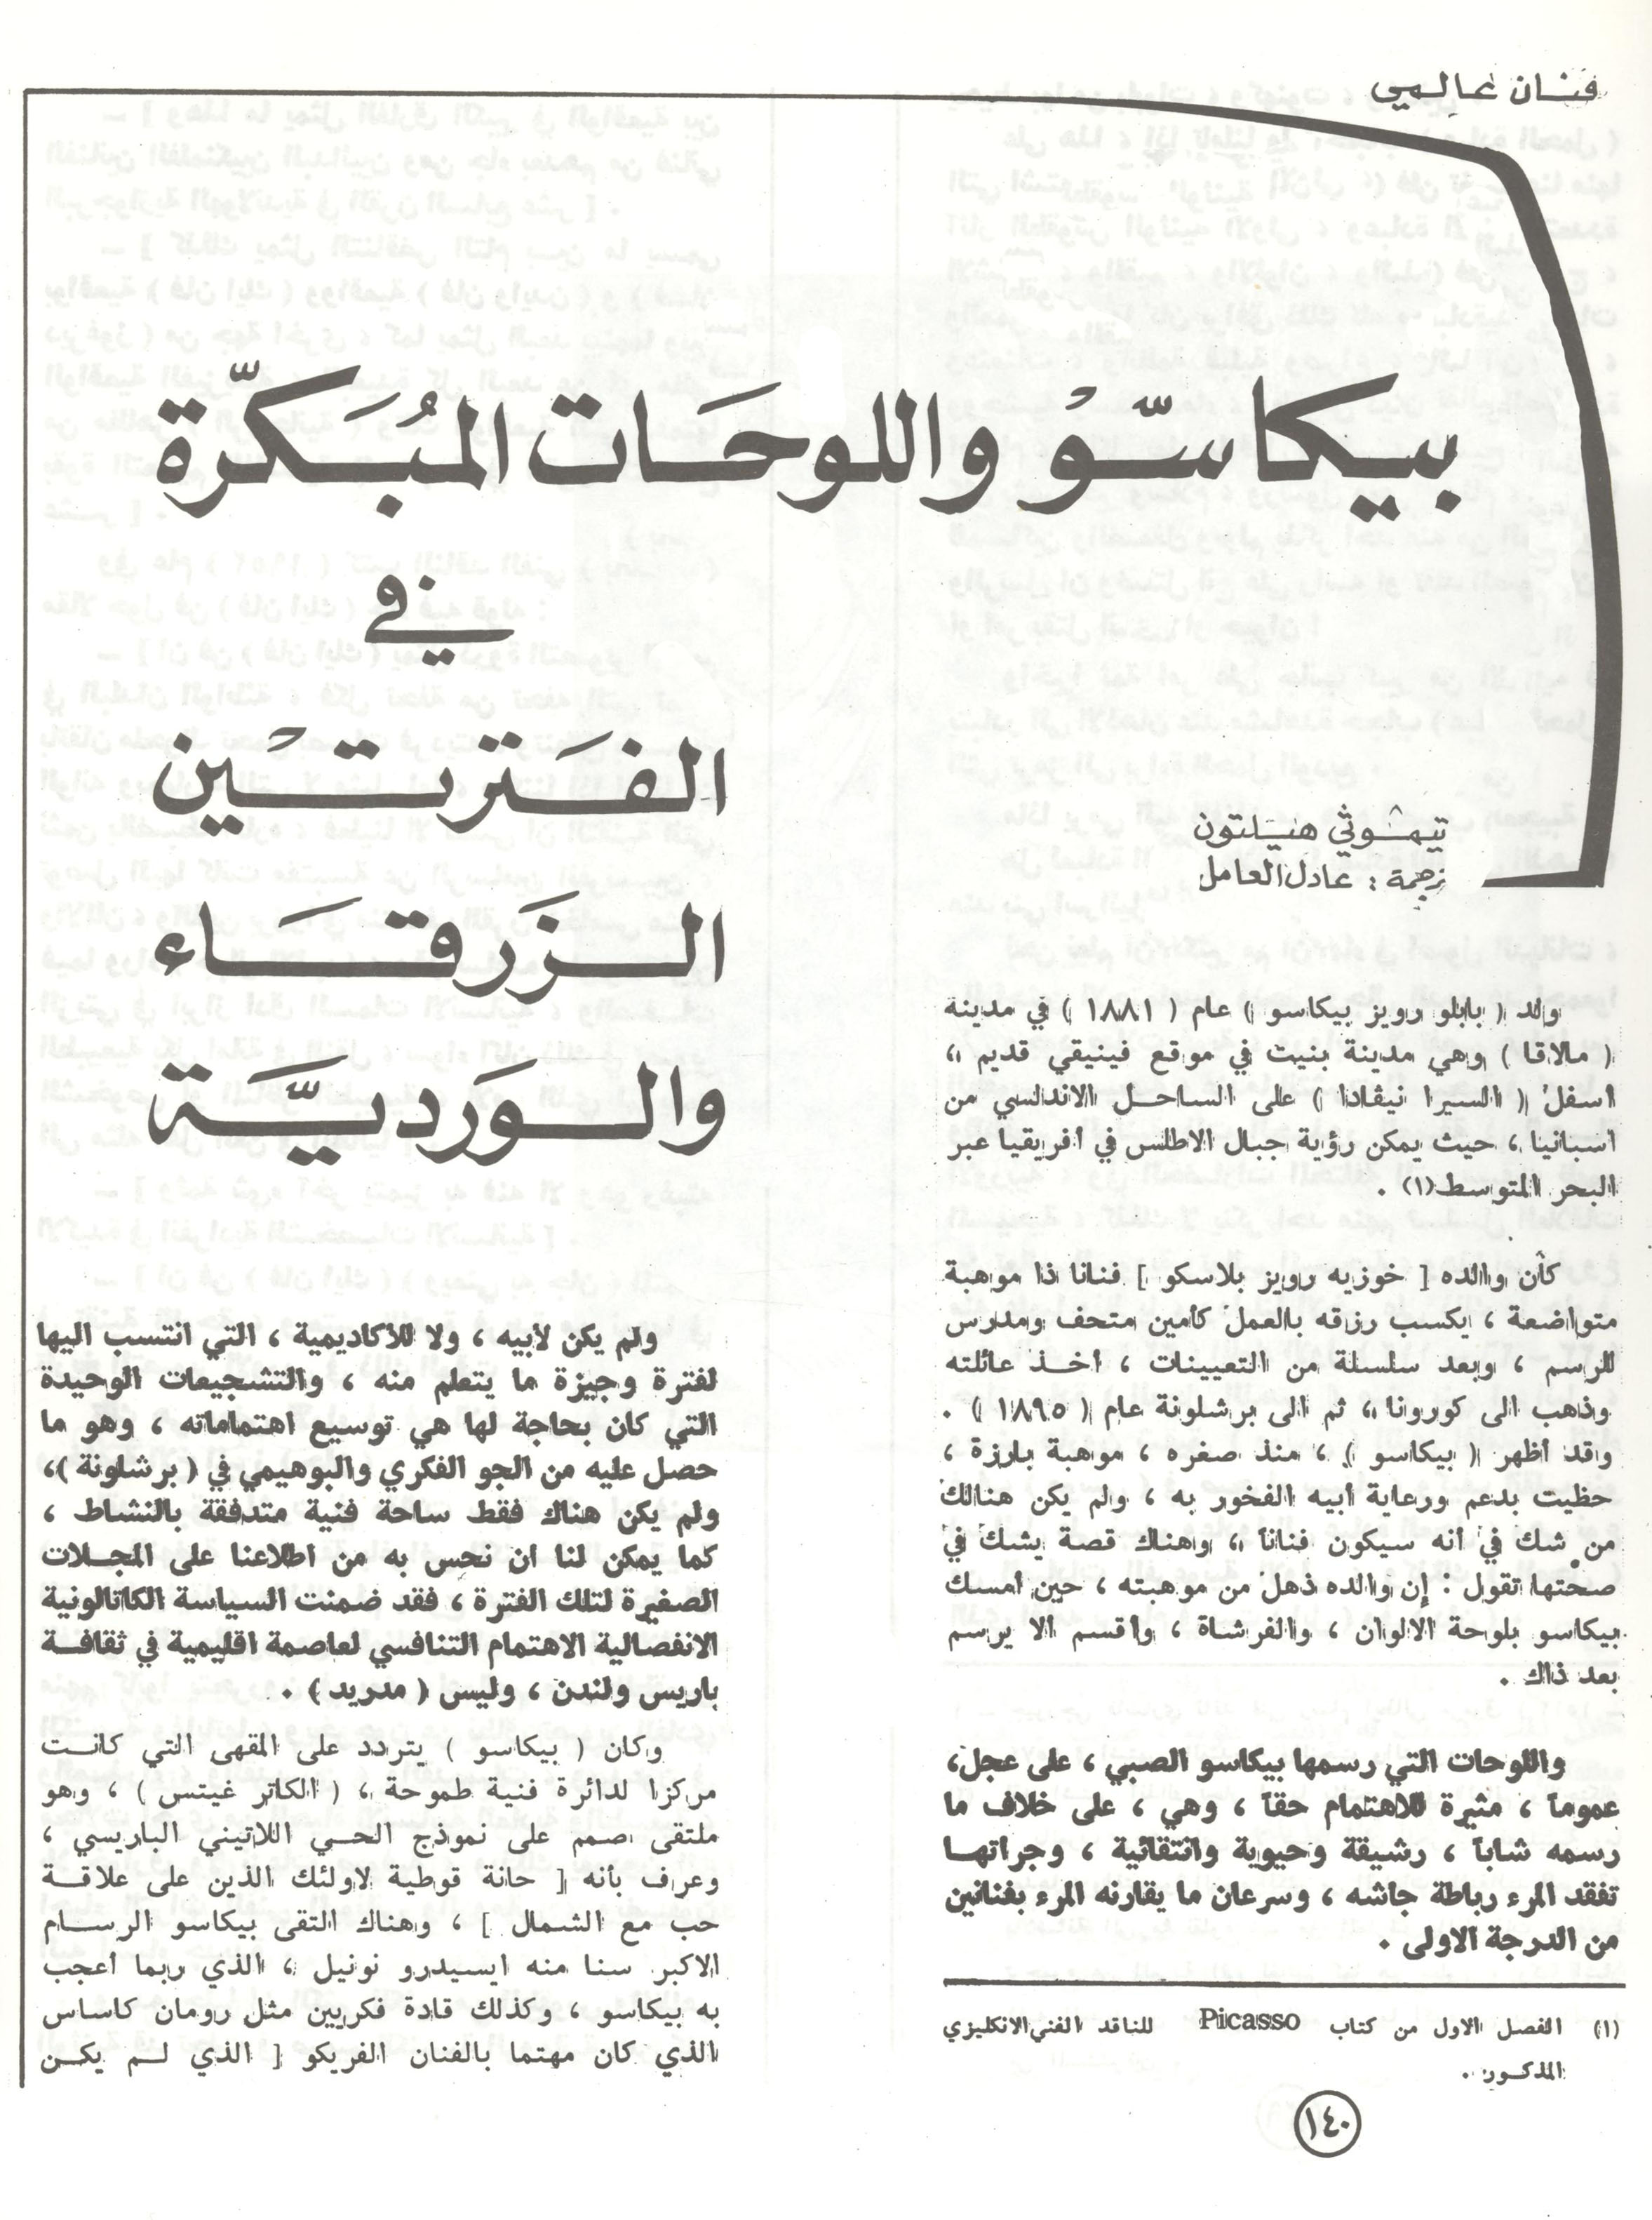 فنان عالمي
بيكاسّو واللوحَات المبُبَكرّة
في
الفَترتين
الزَرقَاء
والوَرديَّة
تيموثي هيلتون
ترجمة : عادل العامل
ولد ( بابلو رويز بيكاسو ) عام ( ١٨٨١ ) في مدينة
( مالاقا ) وهي مدينة بنيت في موقع فينيقي قديم ،
اسفل ( السيرا نيڤادا ) على الساحل الاندلسي من
اسبانيا ، حيث يمكن رؤية جبال الاطلس في أفريقيا عبر
البحر المتوسط(١) .
كان والده [ خوزيه رويز بلاسكو ] فنانا ذا موهبة
متواضعة ، يكسب رزقه بالعمل كأمين متحف ومدرس
للرسم ، وبعد سلسلة من التعيينات ، أخذ عائلته
وذهب الى كورونا ، ثم الى برشلونة عام ( ١٨٩٥ ) .
وقد أظهر ( بيكاسو ) ، منذ صغره ، موهبة بارزة ،
حظيت بدعم ورعاية أبيه الفخور به ، ولم يكن هنالك
من شك في أنه سيكون فناناً ، وهناك قصة يشك في
صحتها تقول : إن والده ذهل من موهبته ، حين امسك
بيكاسو بلوحة الالوان ، والفرشاة ، وأقسم الا يرسم
بعد ذاك .
واللوحات التي رسمها بيكاسو الصبي ، على عجل ،
عموماً ، مثيرة للاهتمام حقاً ، وهي ، على خلاف ما
رسمه شاباً ، رشيقة وحيوية وانتقائية ، وجراتها
تفقد المرء رباطة جاشه ، وسرعان ما يقارنه المرء بفنانين
من الدرجة الاولى .
(١) الفصل الاول من كتاب Picasso للناقد الفني الانكليزي
المذكور .
ولم يكن لأبيه ، ولا للأكاديمية ، التي انتسب اليها
لفترة وجيزة ما يتعلم منه ، والتشجيعات الوحيدة
التي كان بحاجة لها هي توسيع اهتماماته ، وهو ما
حصل عليه من الجو الفكري والبوهيمي في ( برشلونة ) ،
ولم يكن هناك فقط ساحة فنية متدفقة بالنشاط ،
كما يمكن لنا ان نحس به من اطلاعنا على المجلات
الصغيرة لتلك الفترة ، فقد ضمنت السياسة الكاتالونية
الانفصالية الاهتمام التنافسي لعاصمة اقليمية في ثقافة
باريس ولندن ، وليس ( مدريد ) .
وكان ( بيكاسو ) يتردد على المقهى التي كانت
مركزا لدائرة فنية طموحة ، ( الكاتر غيتس ) ، وهو
ملتقى صمم على نموذج الحي اللاتيني الباريسي ،
وعرف بأنه [ حانة قوطية لاولئك الذين على علاقة
حب مع الشمال ] ، وهناك التقى بيكاسو الرسام
الاكبر سنا منه ايسيدرو نونيل ، الذي ربما أعجب
به بيكاسو ، وكذلك قادة فكريين مثل رومان كاساس
الذي كان مهتما بالفنان الغريكو [ الذي لم يكن
١٤٠